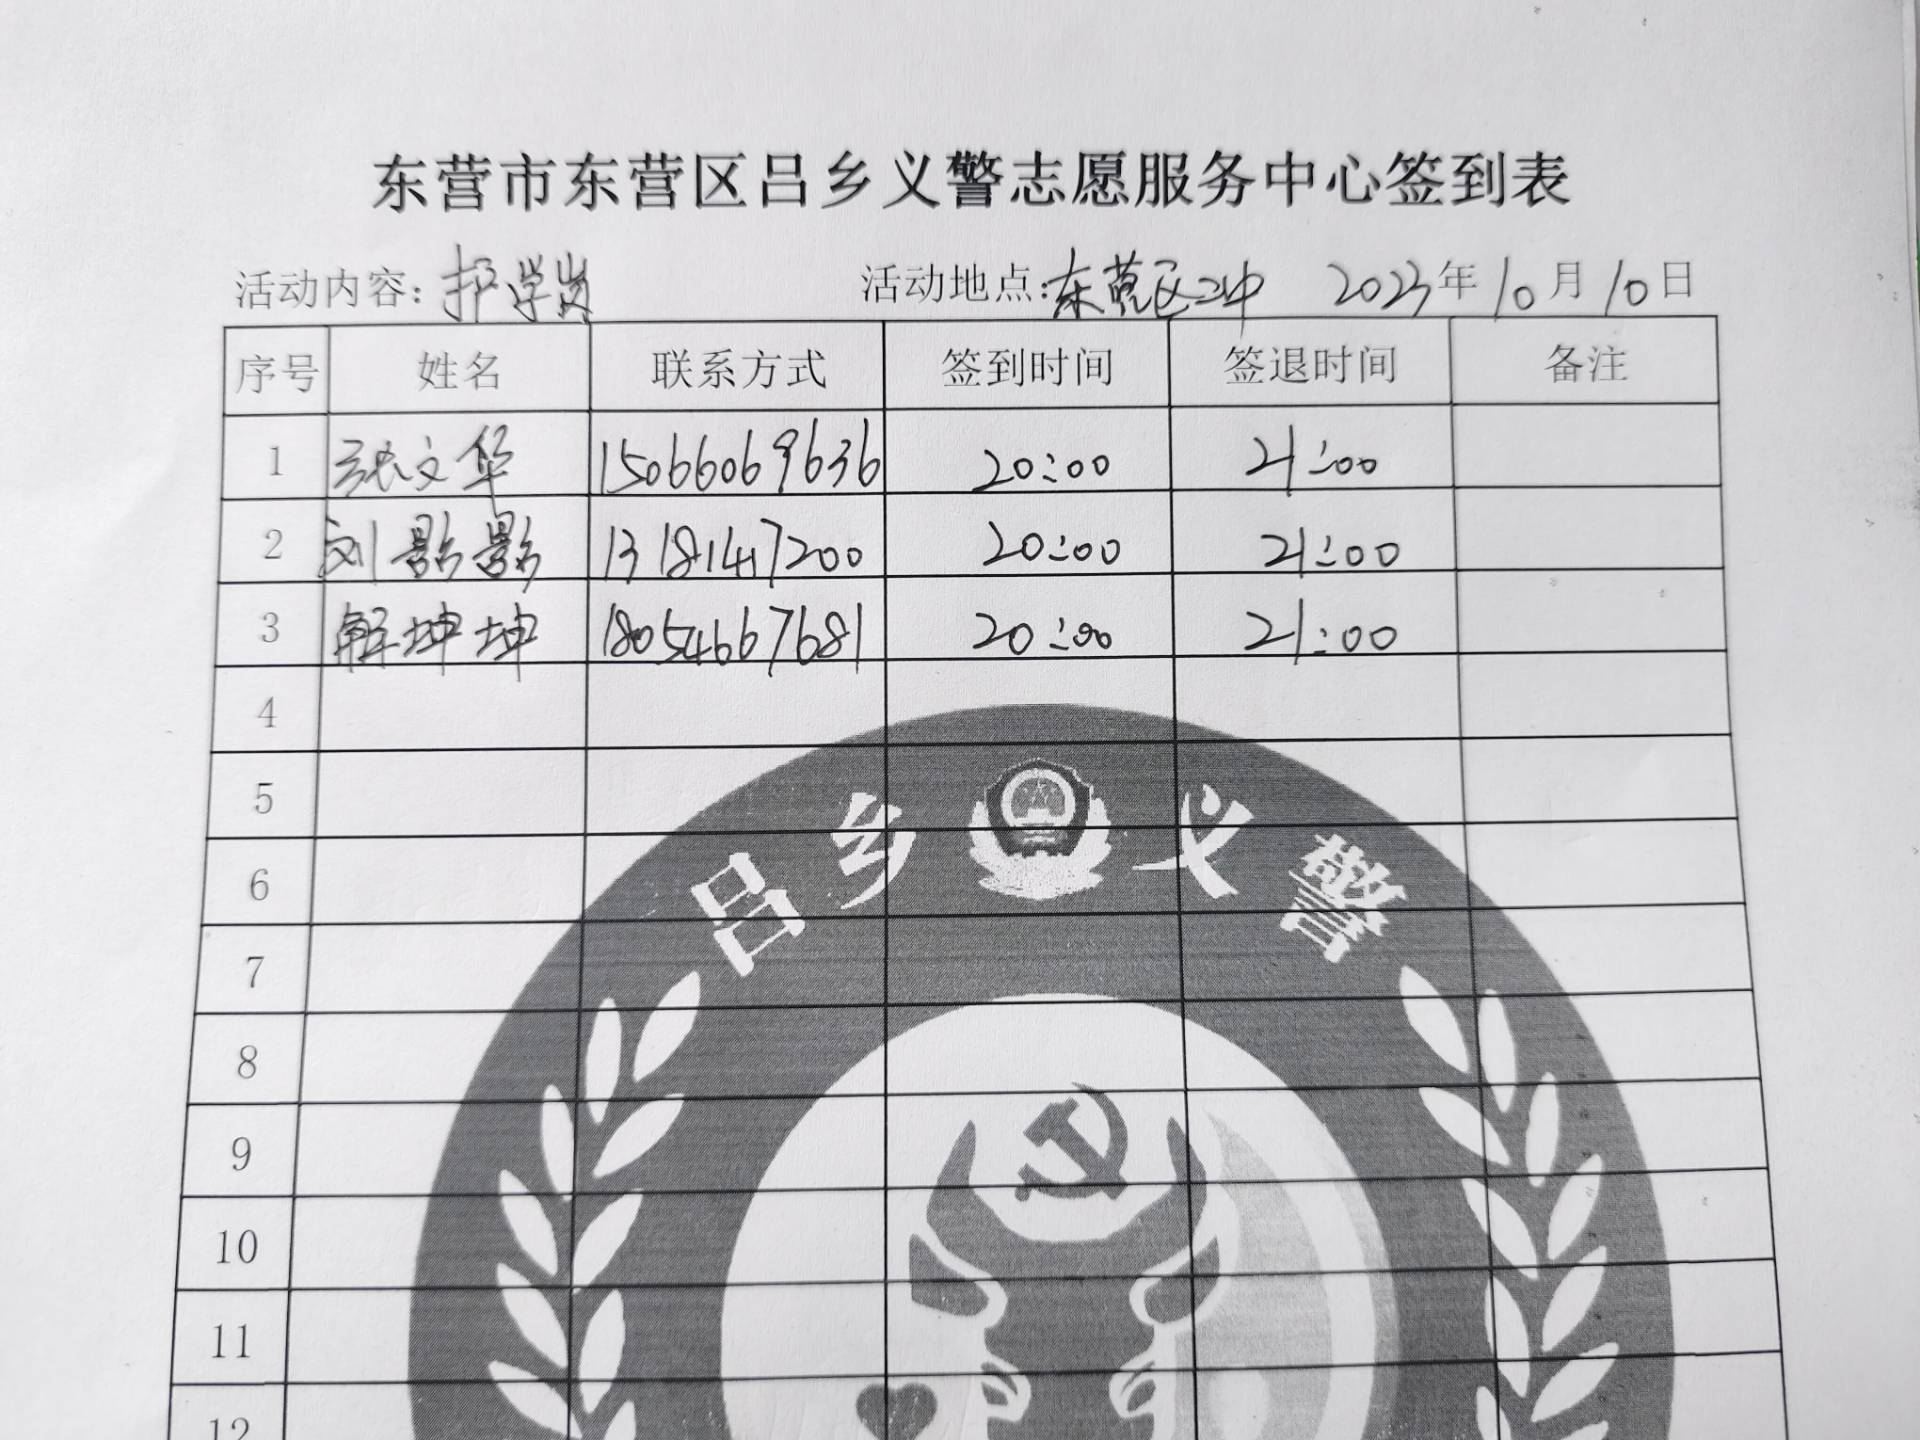 东营市东营区吕乡义警志愿服务中心签到表
活动内容：护学岗 活动地点：东营区二中 2023年10月10日
序号 姓名 联系方式 签到时间 签退时间 备注
1 张文华 15066069636 20:00 21:00
2 刘影影 13181417200 20:00 21:00
3 解坤坤 18054667681 20:00 21:00
4
5
6
7
8
9
10
11
12
吕乡义警